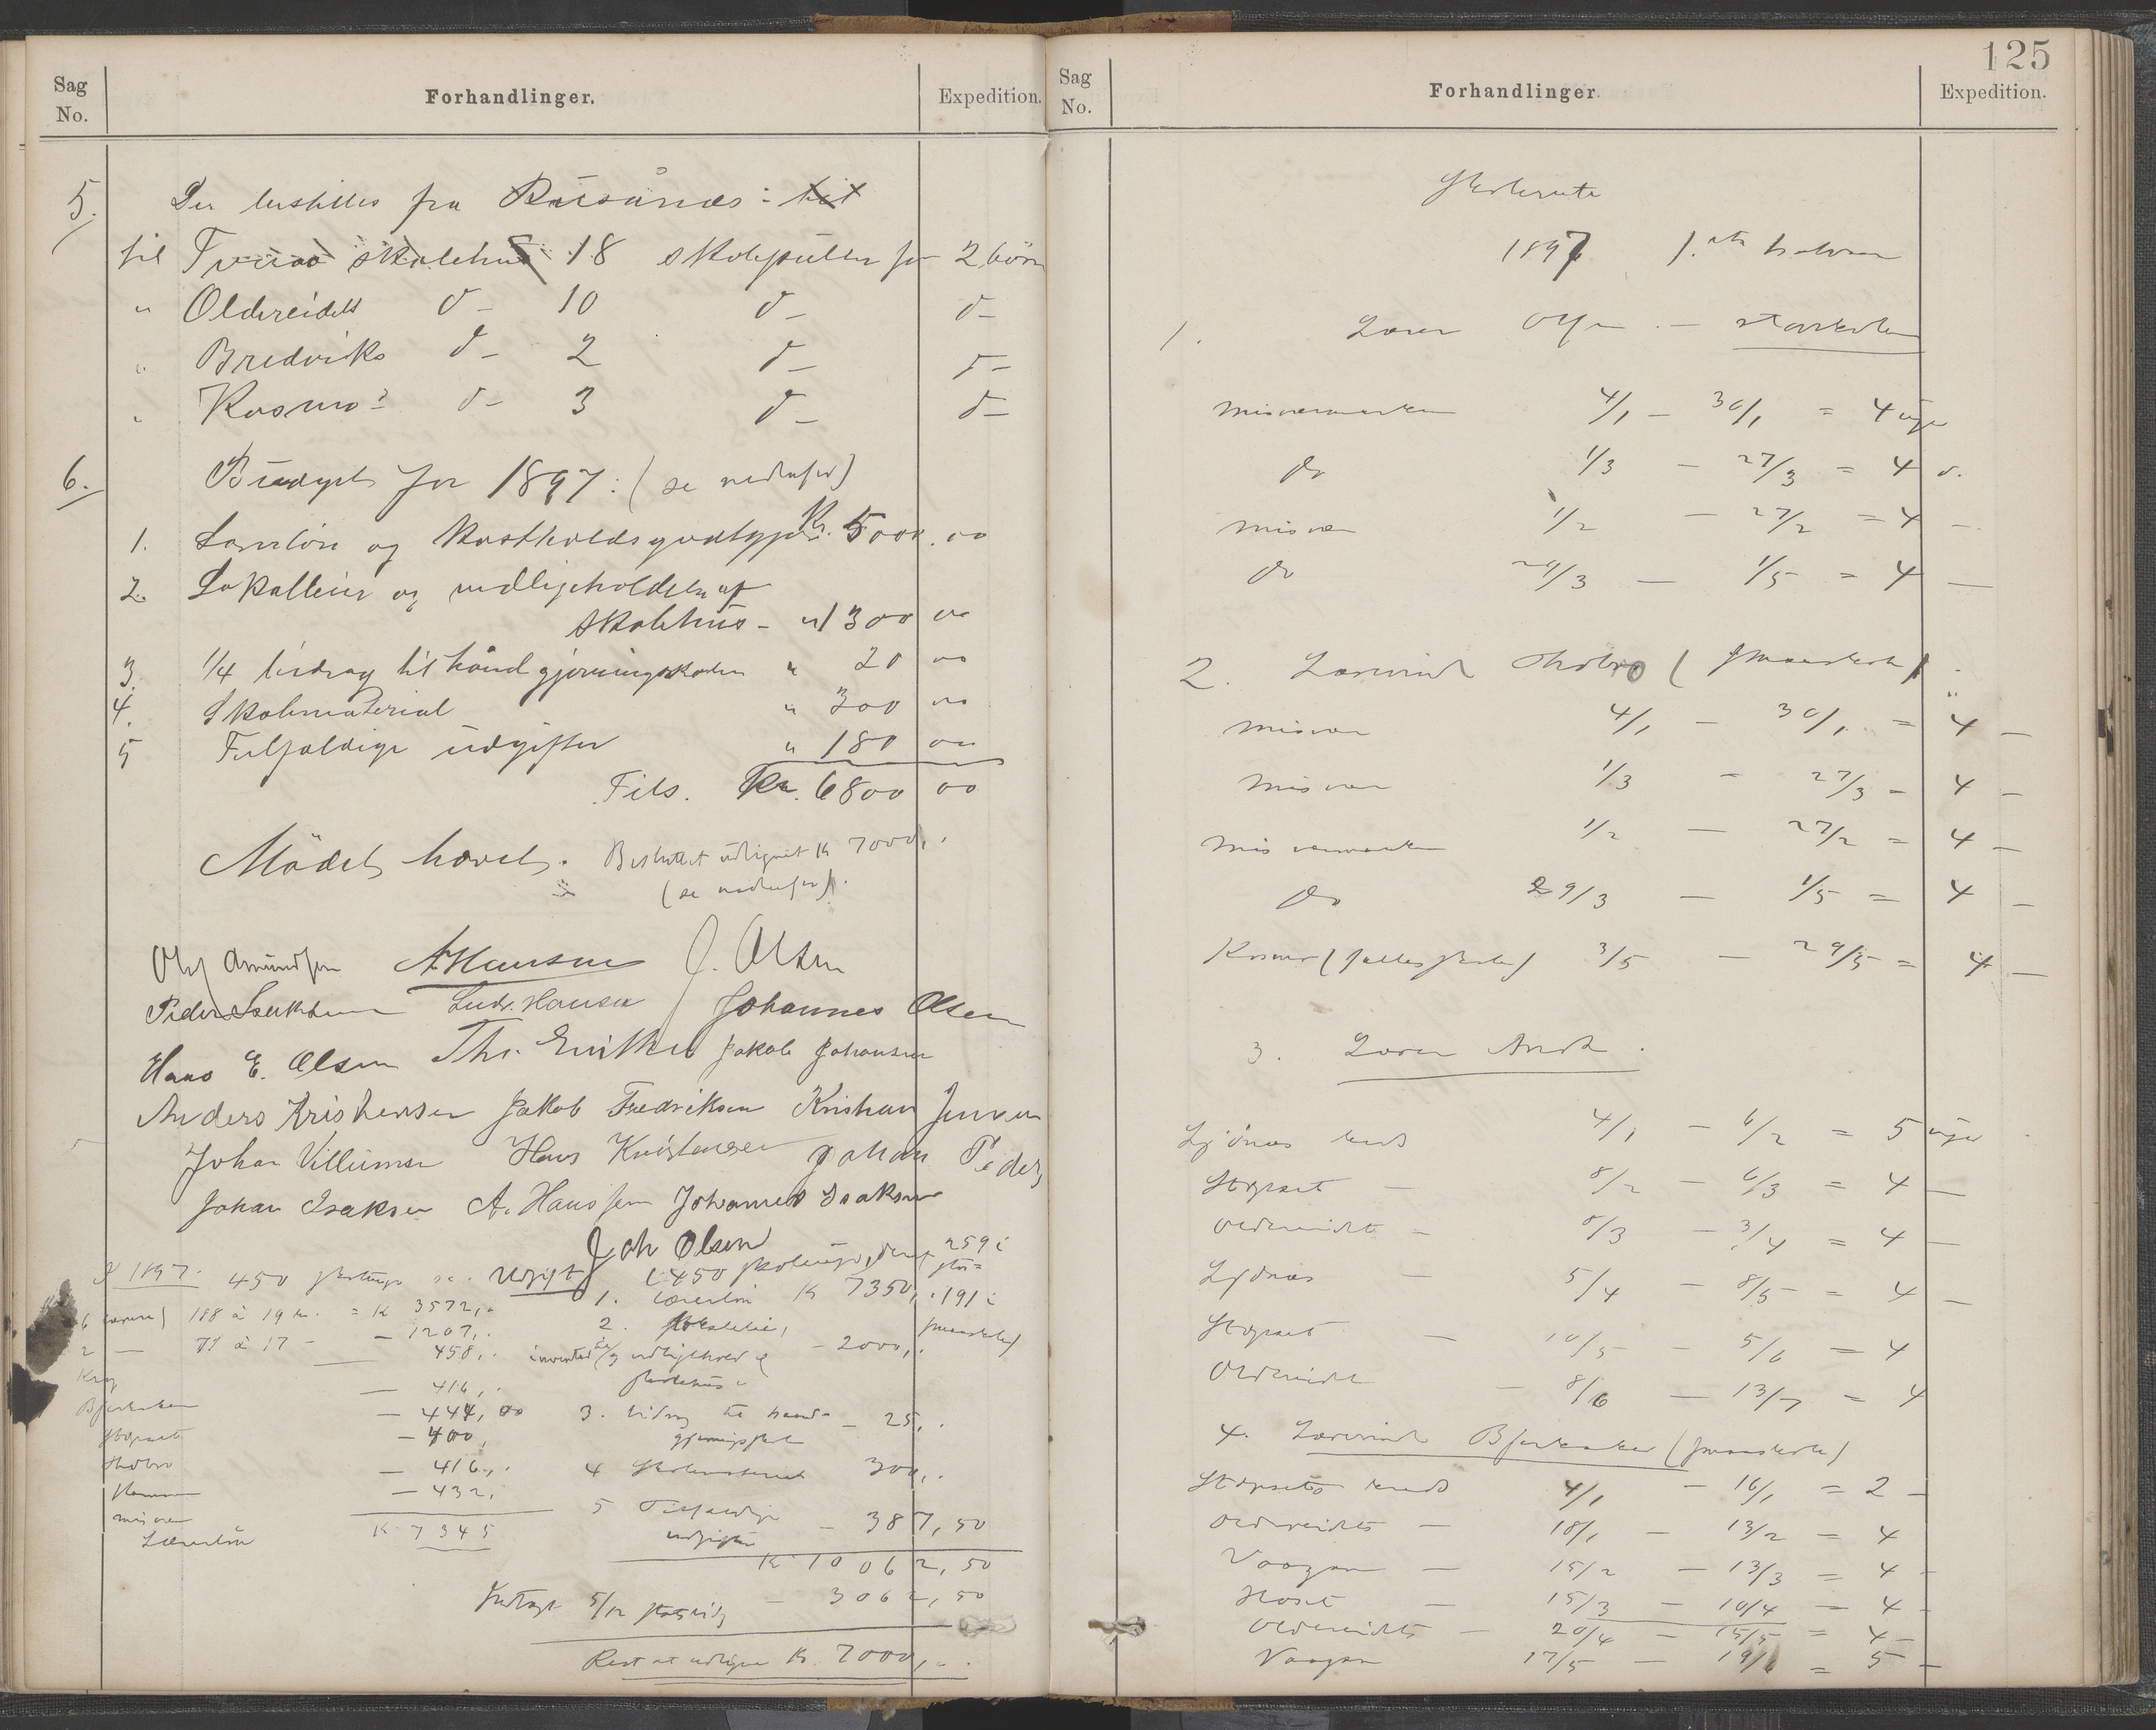 Sag
No.
Forhandlinger.
Expedition.
5. Der bestilles fra Rusånes: til
til Tuv skolehus 18 skolepulter for 2 börn
" Oldereidets d- 10 d- d-
" Bredviks d- 2 d- d-
" Kosmo d- 3 d- d-
6. Budget for 1897: (se nedenfor)
1. Lærerlön og kostholdsgodtgj. Kr. 5000.00
2. Lokalleie og vedligeholdelse af
skolehus - " 1300 00
3. 1/4 bidrag til håndgjerningsskolen " 20 00
4. Skolemateriel " 300 00
5 Tilfældige udgifter " 180 00
Tils. Kr. 6800 00
Mödet hævet. Besluttet udlignet Kr 7000,.
(se nedenfor).
Olaf Amundsen A Hansen J. Olsen
Peder Isaksen Ludv. Hansen Johannes Olsen
Hans E. Olsen Jakob Johansen
Anders Kristensen Jakob Fredriksen Kristian Jensen
Johan Villumsen Hans Kristensen Johan Peders
Johan Isaksen A. Hanssen Johannes Isaksen
Joh Olsen
1897. 450 skoleuger Udgift 450 skoleuger, deraf 259 i
188 à 19 kr. = K 3572,. 1. Lærerlön K 7350,. 191 i
2 — 71 à 17 - - 1207,. 2. Lokalleie, småskolen
Krog — 458,. inventar og vedligehold af - 2000,.
— 416,. skolehuse
Bjerkaker — 444, 00 3. bidrag til haand- — 25,.
Støpset — 400, gjerningsskole
Thobro — 416,. 4 Skolemateriel 300,.
— 432,
Misvær 5 Tilfældige
Lærerlön K. 7345 udgifter — 387,50
K 10062,50
Fradrages 5/12 statsbidrag — 3062,50
Rest at udligne K. 7000,-.
125
Sag
No.
Forhandlinger
Expedition.
Skolerute
1897 1ste halvaar
1. Lærer Olsen — storskolen
Misværmarken 4/1 - 30/1 = 4 uger
do 1/3 - 27/3 = 4 d.
Misvær 1/2 - 27/2 = 4 -
do 29/3 - 1/5 = 4 -
2. Lærerinde Thobro (smaaskole)
Misvær 4/1 - 30/1 = 4 -
Misvær 1/3 - 27/3 = 4 -
Misværmarken 1/2 - 27/2 = 4 -
do 29/3 - 1/5 = 4 -
Kosmo (fællesskole) 3/5 - 29/5 = 4 -
3. Lærer Andr.
Ljönes kreds 4/1 - 6/2 = 5 uger
Støpset - 8/2 - 6/3 = 4 -
Oldereidet - 8/3 - 3/4 = 4 -
Ljönes - 5/4 - 8/5 = 4 -
Støpset - 10/5 - 5/6 = 4
Oldereidet - 8/6 - 13/7 = 4
4. Lærerinde Bjerkaker (smaaskole)
Støpsets kreds 4/1 - 16/1 = 2 -
Oldereidets - 18/1 - 13/2 = 4
Vaagan - 15/2 - 13/3 = 4 -
Høset - 15/3 - 10/4 = 4 -
Oldereidets - 20/4 - 15/5 = 4 -
Vaagan 17/5 - 19/6 = 5 -